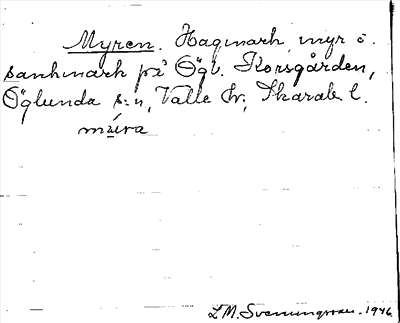 Myren. Hagmark, myr o.
sankmark på Ögl. Korsgården,
Öglunda s:n, Valle hr, Skarab. l.
mýra
L M. Svenungsson. 1946